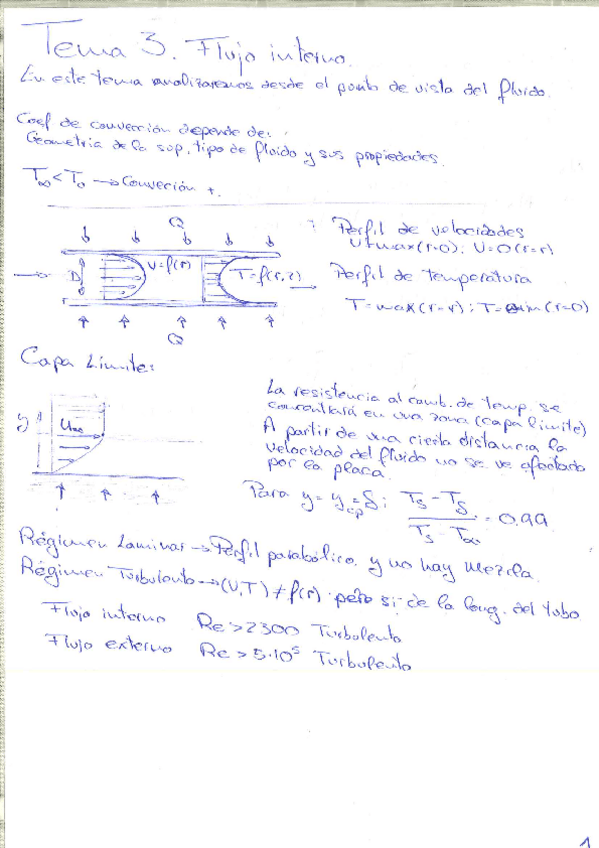 Tema 3. Flujo interno.
En este tema analizaremos desde el punto de vista del fluido.
Coef de convección depende de:
Geometria de la sup, tipo de fluido y sus propiedades.
T∞ < To → Conveción +.
Q
D
v=f(r)
T=f(r,z)
Q
Perfil de velocidades
U=max(r=0); U=0(r=r)
Perfil de temperatura
T=max(r=r); T=min(r=0)
Capa Límite:
y
U∞
La resistencia al camb. de temp. se
concentrará en una zona (capa límite)
A partir de una cierta distancia la
velocidad del fluido no se ve afectado
por la placa.
Para y = ycp = δ; (Ts - Tδ)/(Ts - T∞) = 0.99
Régimen Laminar → Perfil parabólico y no hay mezcla.
Régimen Turbulento → (U,T) ≠ f(r) pero si de la long. del tubo
Flujo interno Re > 2300 Turbulento
Flujo externo Re > 5·10⁵ Turbulento
1